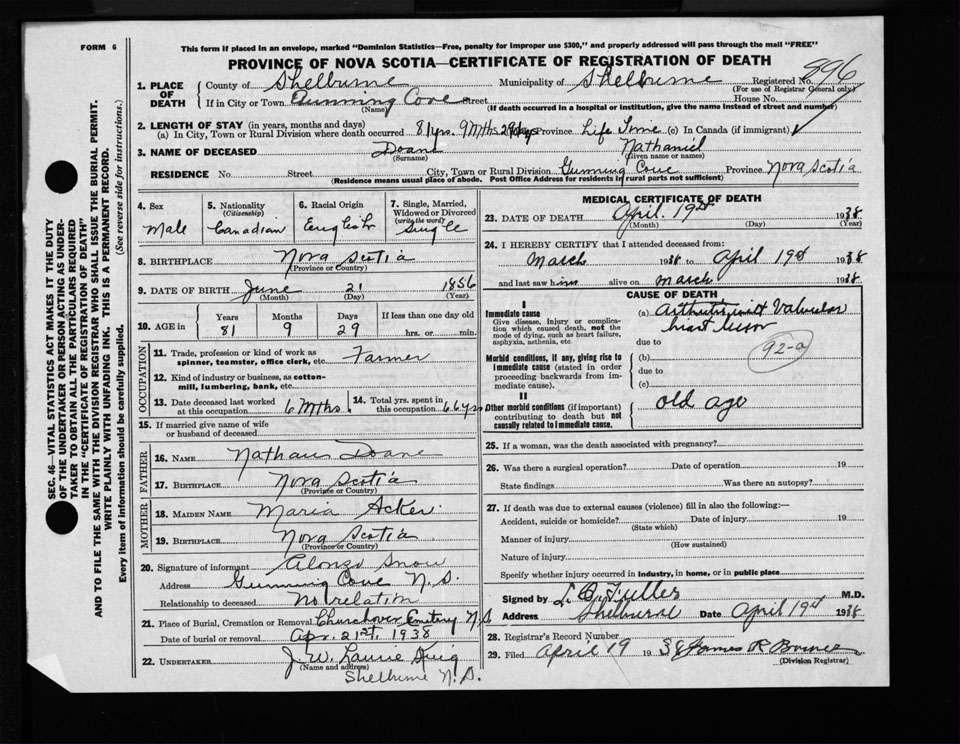 FORM 6
This form if placed in an envelope, marked "Dominion Statistics—Free, penalty for improper use $300," and properly addressed will pass through the mail "FREE"
PROVINCE OF NOVA SCOTIA—CERTIFICATE OF REGISTRATION OF DEATH
896
1. PLACE OF DEATH
County of Shelburne Municipality of Shelburne Registered No.
(For use of Registrar General only)
If in City or Town Gunning Cove Street House No.
(Name) (If death occurred in a hospital or institution, give the name instead of street and number)
2. LENGTH OF STAY (in years, months and days)
(a) In City, Town or Rural Division where death occurred 81 yrs. 9 Mths 29 days Province Life Time (c) In Canada (if immigrant)
3. NAME OF DECEASED Doane Nathaniel
(Surname) (Given name or names)
RESIDENCE No. Street City, Town or Rural Division Gunning Cove Province Nova Scotia
(Residence means usual place of abode. Post Office Address for residents in rural parts not sufficient)
4. Sex
Male
5. Nationality
(Citizenship)
Canadian
6. Racial Origin
English
7. Single, Married, Widowed or Divorced
(write the word)
Single
8. BIRTHPLACE Nova Scotia
(Province or Country)
9. DATE OF BIRTH June 21 1856
(Month) (Day) (Year)
10. AGE in
Years Months Days If less than one day old
81 9 29 hrs. or min.
OCCUPATION
11. Trade, profession or kind of work as spinner, teamster, office clerk, etc. Farmer
12. Kind of industry or business, as cotton-mill, lumbering, bank, etc.
13. Date deceased last worked at this occupation 6 Mths.
14. Total yrs. spent in this occupation 66 yrs
15. If married give name of wife or husband of deceased
FATHER
16. NAME Doane
17. BIRTHPLACE Nova Scotia
(Province or Country)
MOTHER
18. MAIDEN NAME Maria Acker
19. BIRTHPLACE Nova Scotia
(Province or Country)
20. Signature of informant Alonzo Snow
Address Gunning Cove N.S.
Relationship to deceased No relation
21. Place of Burial, Cremation or Removal Churchover Cemetery N.S
Date of burial or removal Apr. 21st, 1938
22. UNDERTAKER J. W. Laurie
(Name and address)
Shelburne N.S.
MEDICAL CERTIFICATE OF DEATH
23. DATE OF DEATH April. 19th 1938
(Month) (Day) (Year)
24. I HEREBY CERTIFY that I attended deceased from:
March 1938 to April 19th 1938
and last saw him alive on March 1938
CAUSE OF DEATH
I
Immediate cause
Give disease, injury or complication which caused death, not the mode of dying, such as heart failure, asphyxia, asthenia, etc.
(a) Valvular
heart
due to
92-a
Morbid conditions, if any, giving rise to immediate cause (stated in order proceeding backwards from immediate cause).
(b)
due to
(c)
II
Other morbid conditions (if important) contributing to death but not causally related to immediate cause.
old age
25. If a woman, was the death associated with pregnancy?
26. Was there a surgical operation? Date of operation 19
State findings Was there an autopsy?
27. If death was due to external causes (violence) fill in also the following:—
Accident, suicide or homicide? Date of injury 19
(State which)
Manner of injury
(How sustained)
Nature of injury
Specify whether injury occurred in industry, in home, or in public place
Signed by L. B. Fuller M.D.
Address Date April 19th 1938
28. Registrar's Record Number
29. Filed April 19 1938 James R
(Division Registrar)
SEC. 46—VITAL STATISTICS ACT MAKES IT THE DUTY
OF THE UNDERTAKER OR PERSON ACTING AS UNDER-
TAKER TO OBTAIN ALL THE PARTICULARS REQUIRED
IN THE "CERTIFICATE OF REGISTRATION OF DEATH"
AND TO FILE THE SAME WITH THE DIVISION REGISTRAR WHO SHALL ISSUE THE BURIAL PERMIT.
WRITE PLAINLY WITH UNFADING INK. THIS IS A PERMANENT RECORD.
Every item of information should be carefully supplied. (See reverse side for instructions.)